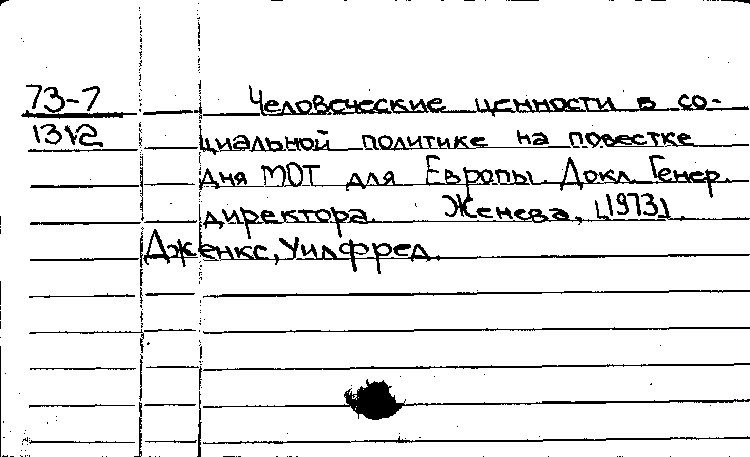 73-7
1312
Человеческие ценности в со-
циальной политике на повестке
дня МОТ для Европы. Докл. Генер.
директора. Женева, [1973].
Дженкс, Уилфред.